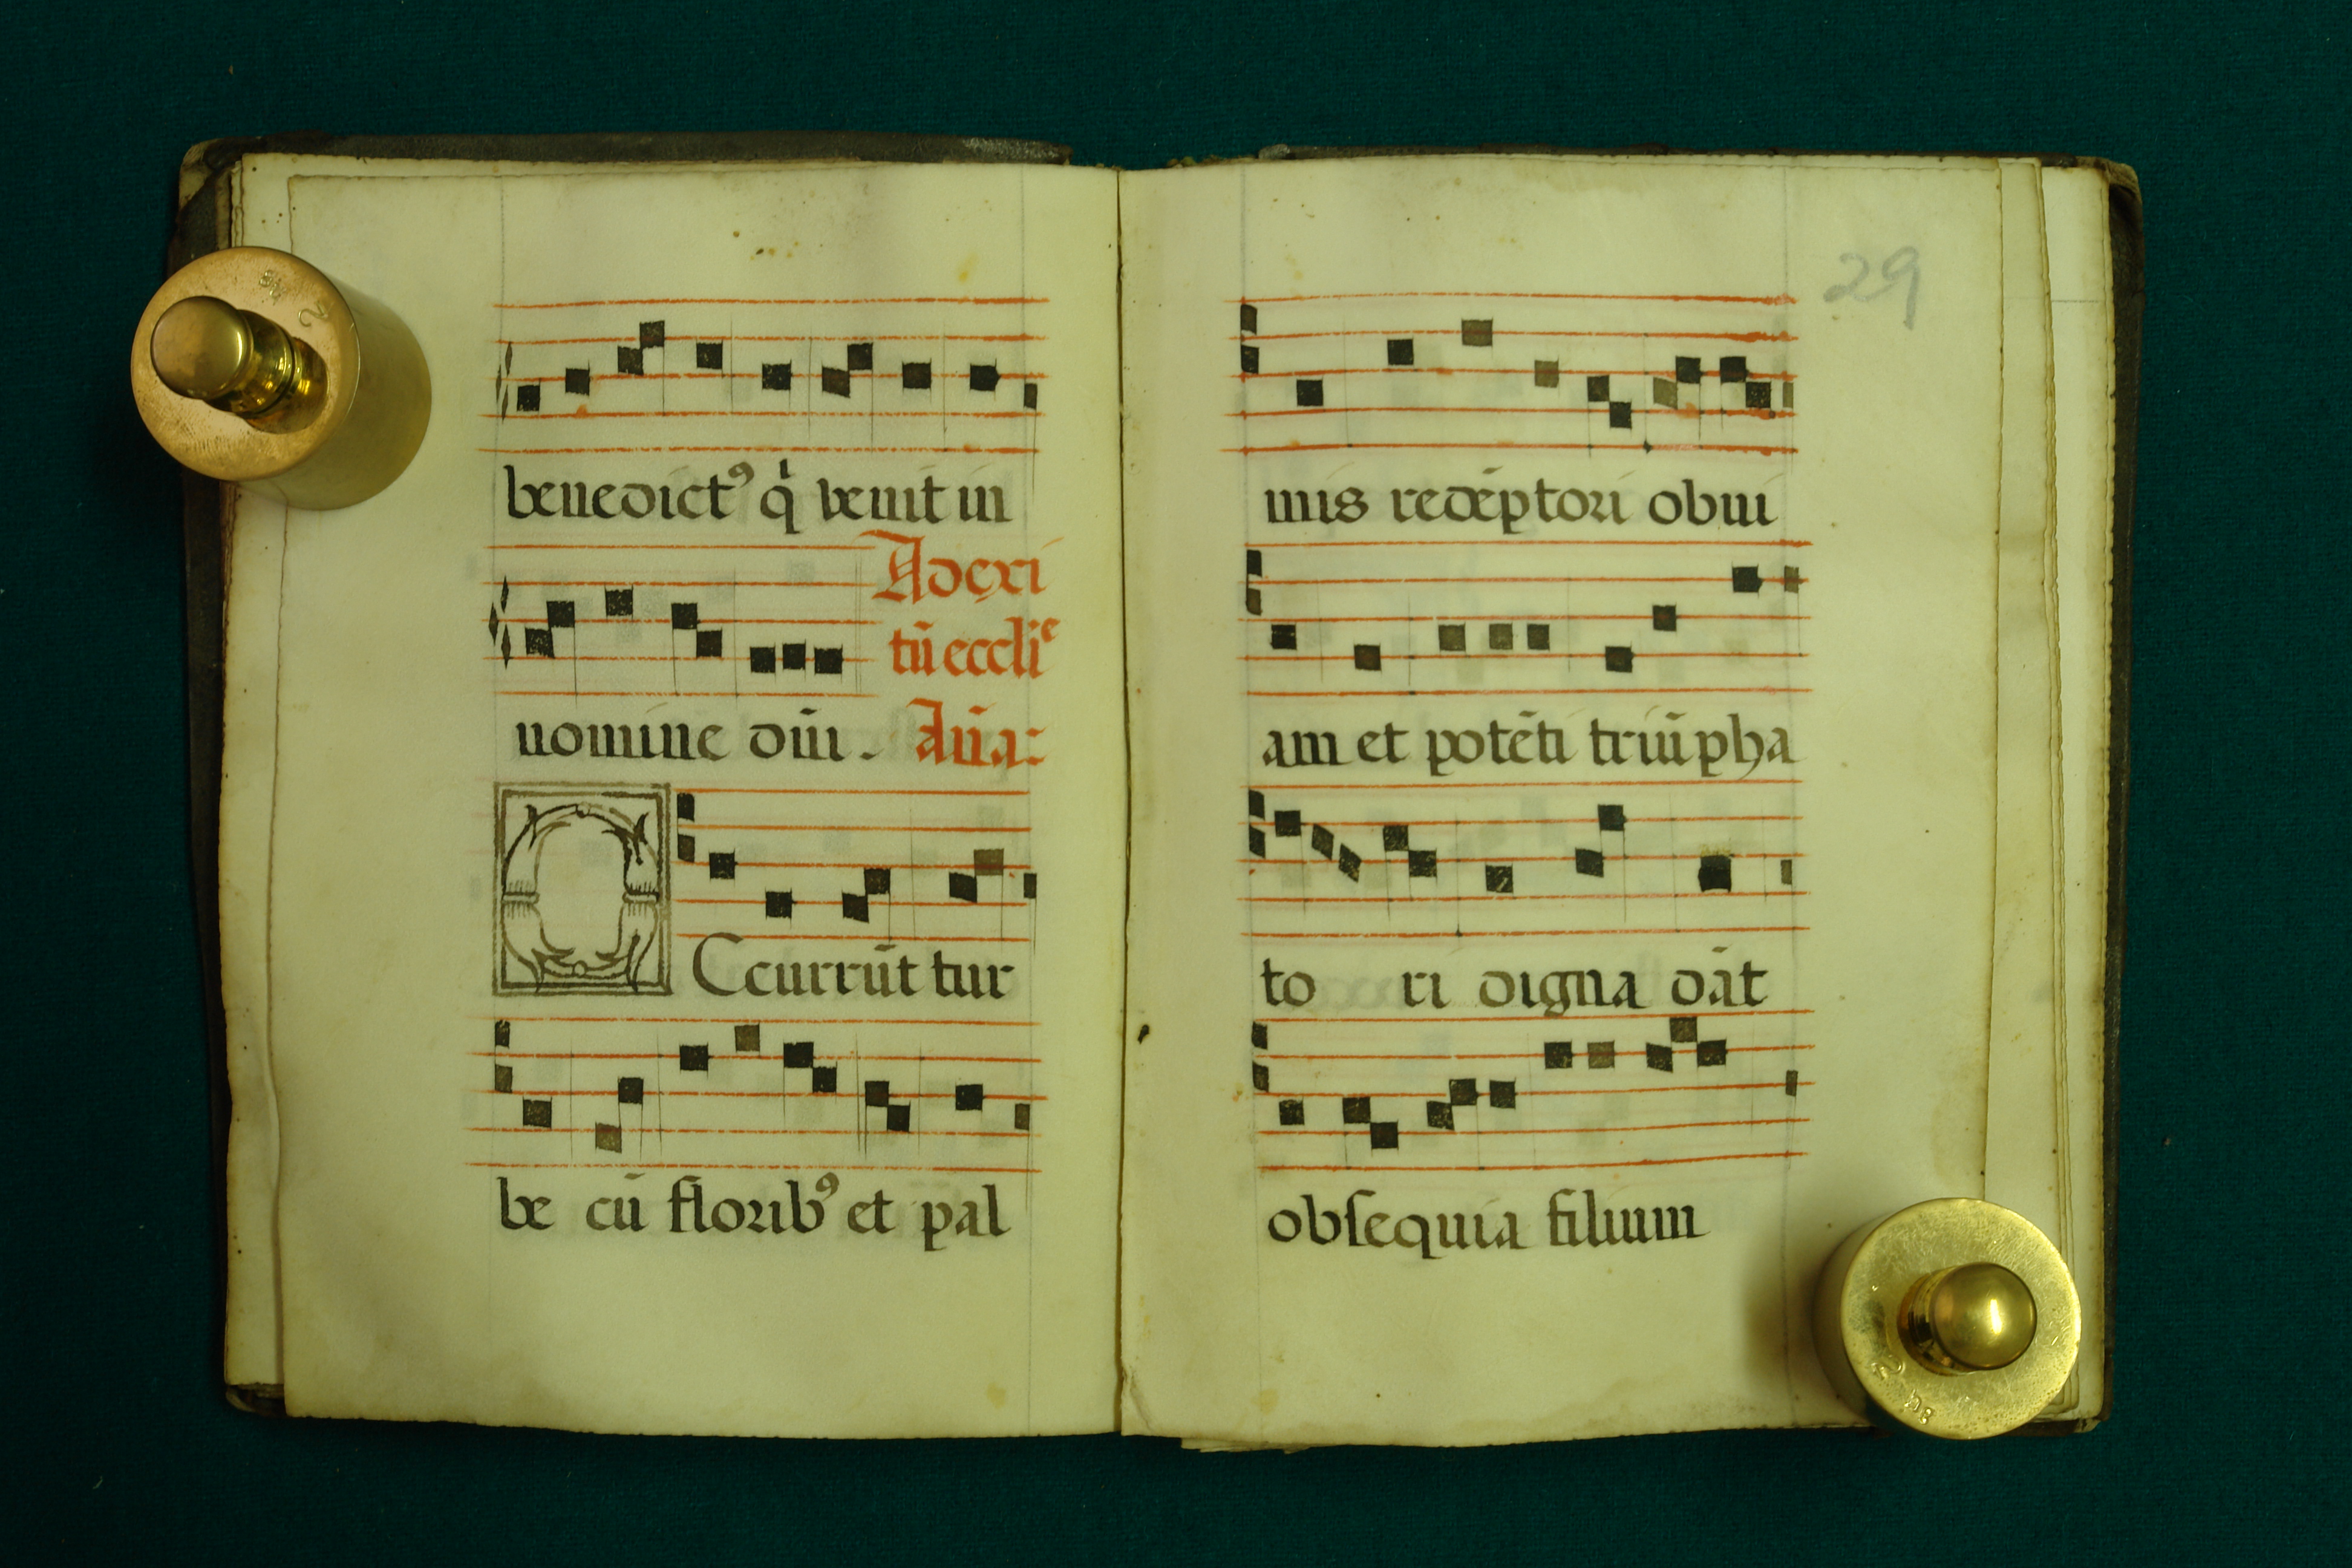 benedictꝰ q̇ venit in
Ad exi
tū eccliᵉ
nomine dn̄i. An̄a:
OCcurrūt tur
be cū floribꝰ et pal
29
mis redēptori obui
am et potēti triūpha
to ri digna dāt
obſequia filium